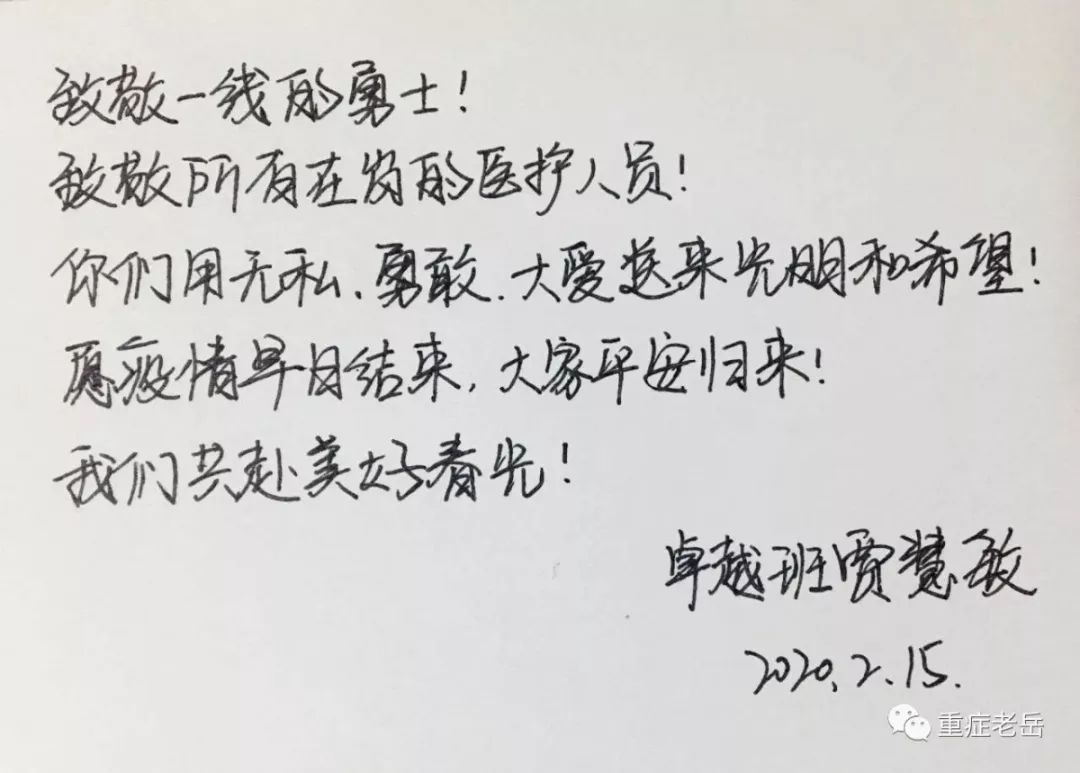 致敬一线的勇士!
致敬所有在岗的医护人员!
你们用无私、勇敢、大爱送来光明和希望!
愿疫情早日结束,大家平安归来!
我们共赴美好春光!
卓越班贾慧敏
2020.2.15.
重症老岳